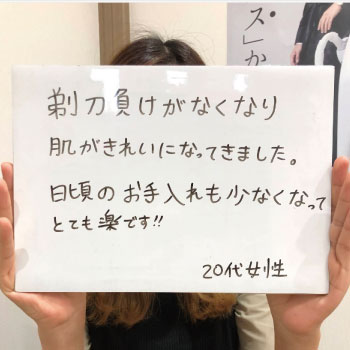 ス」か
剃刀負けがなくなり
肌がきれいになってきました。
日頃のお手入れも少なくなって
とても楽です!!
20代女性